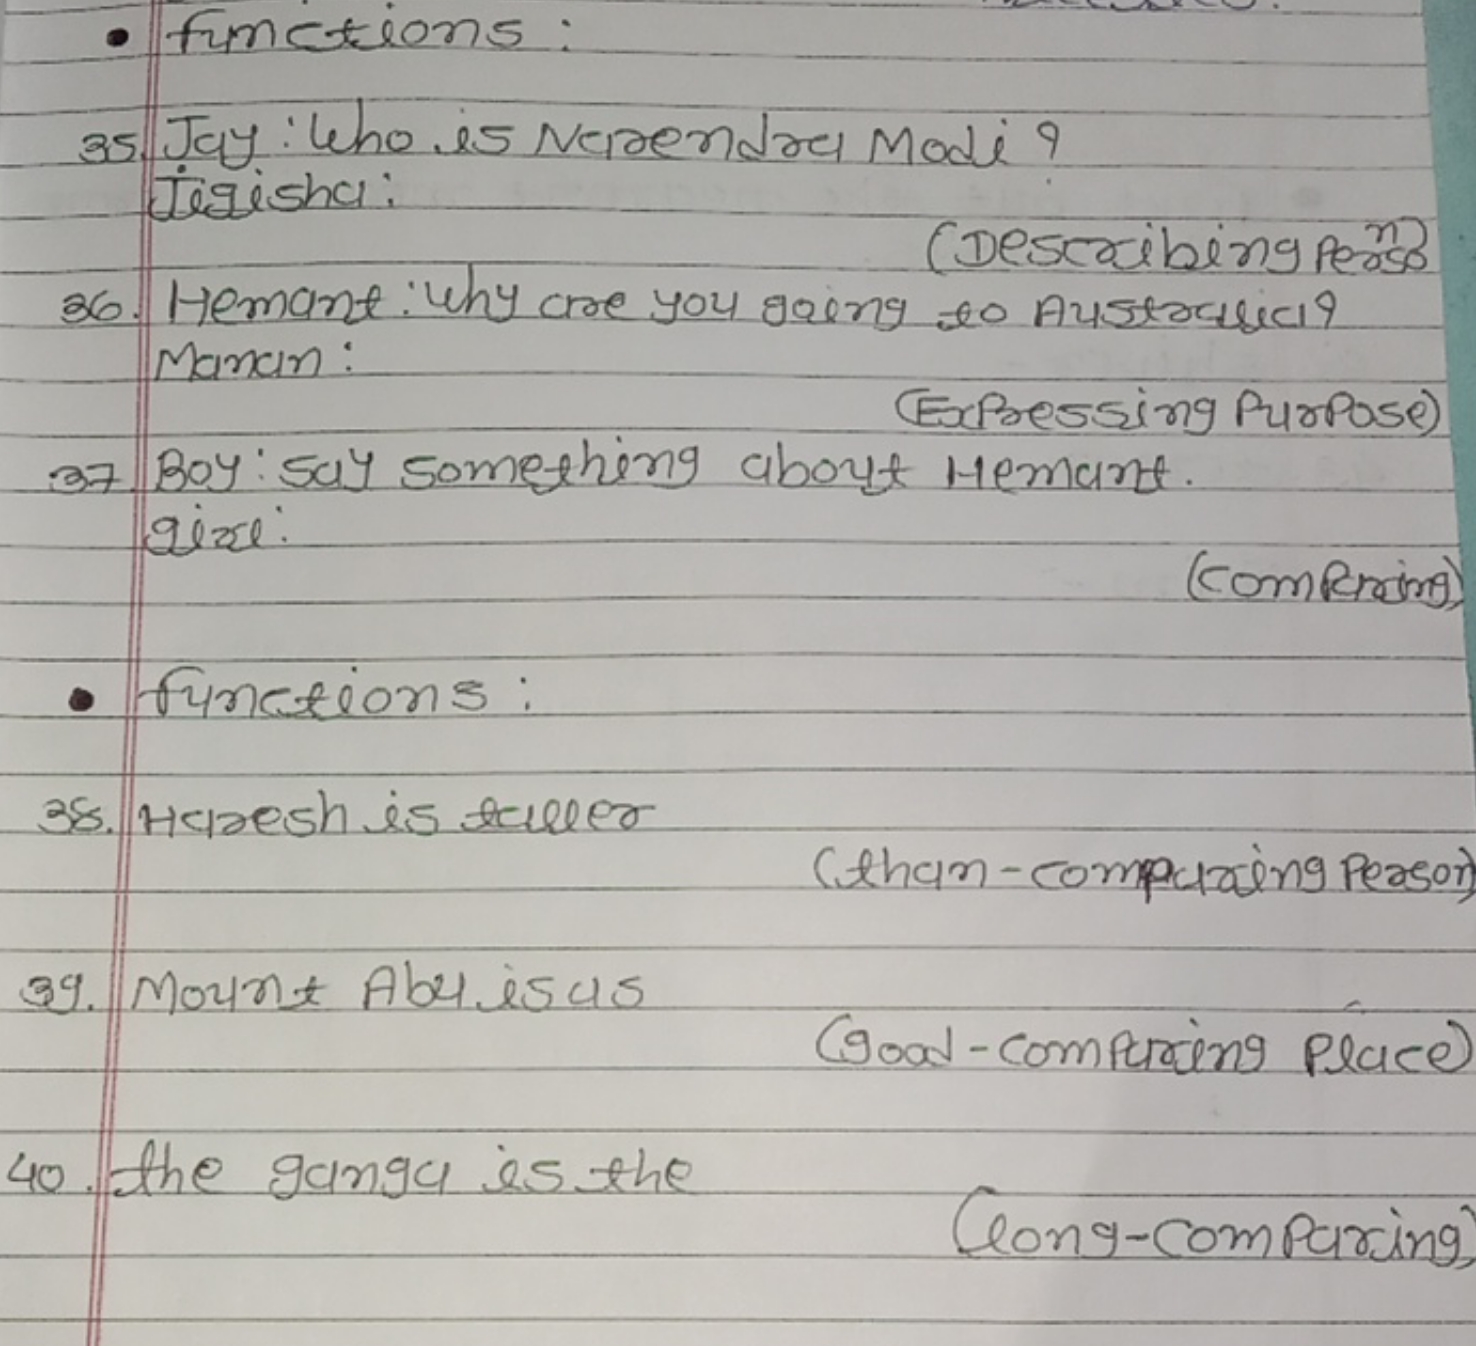 • functions:
35. Jay: Who is Narendra Modi?
Jigisha:
(Describing Person)
36. Hemant: Why are you going to Australia?
Manan:
(Expressing Purpose)
37. Boy: Say something about Hemant.
girl:
(Comparing)
• functions:
38. Haresh is taller
(than-comparing Person)
39. Mount Abu is as
(good-comparing Place)
40. the ganga is the
(long-comparing)